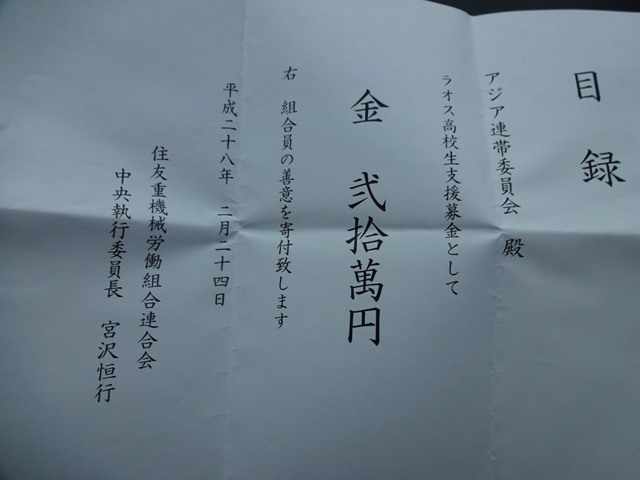 目録
アジア連帯委員会 殿
ラオス高校生支援募金として
金 弐拾萬円
右 組合員の善意を寄付致します
平成二十八年 二月二十四日
住友重機械労働組合連合会
中央執行委員長 宮沢恒行